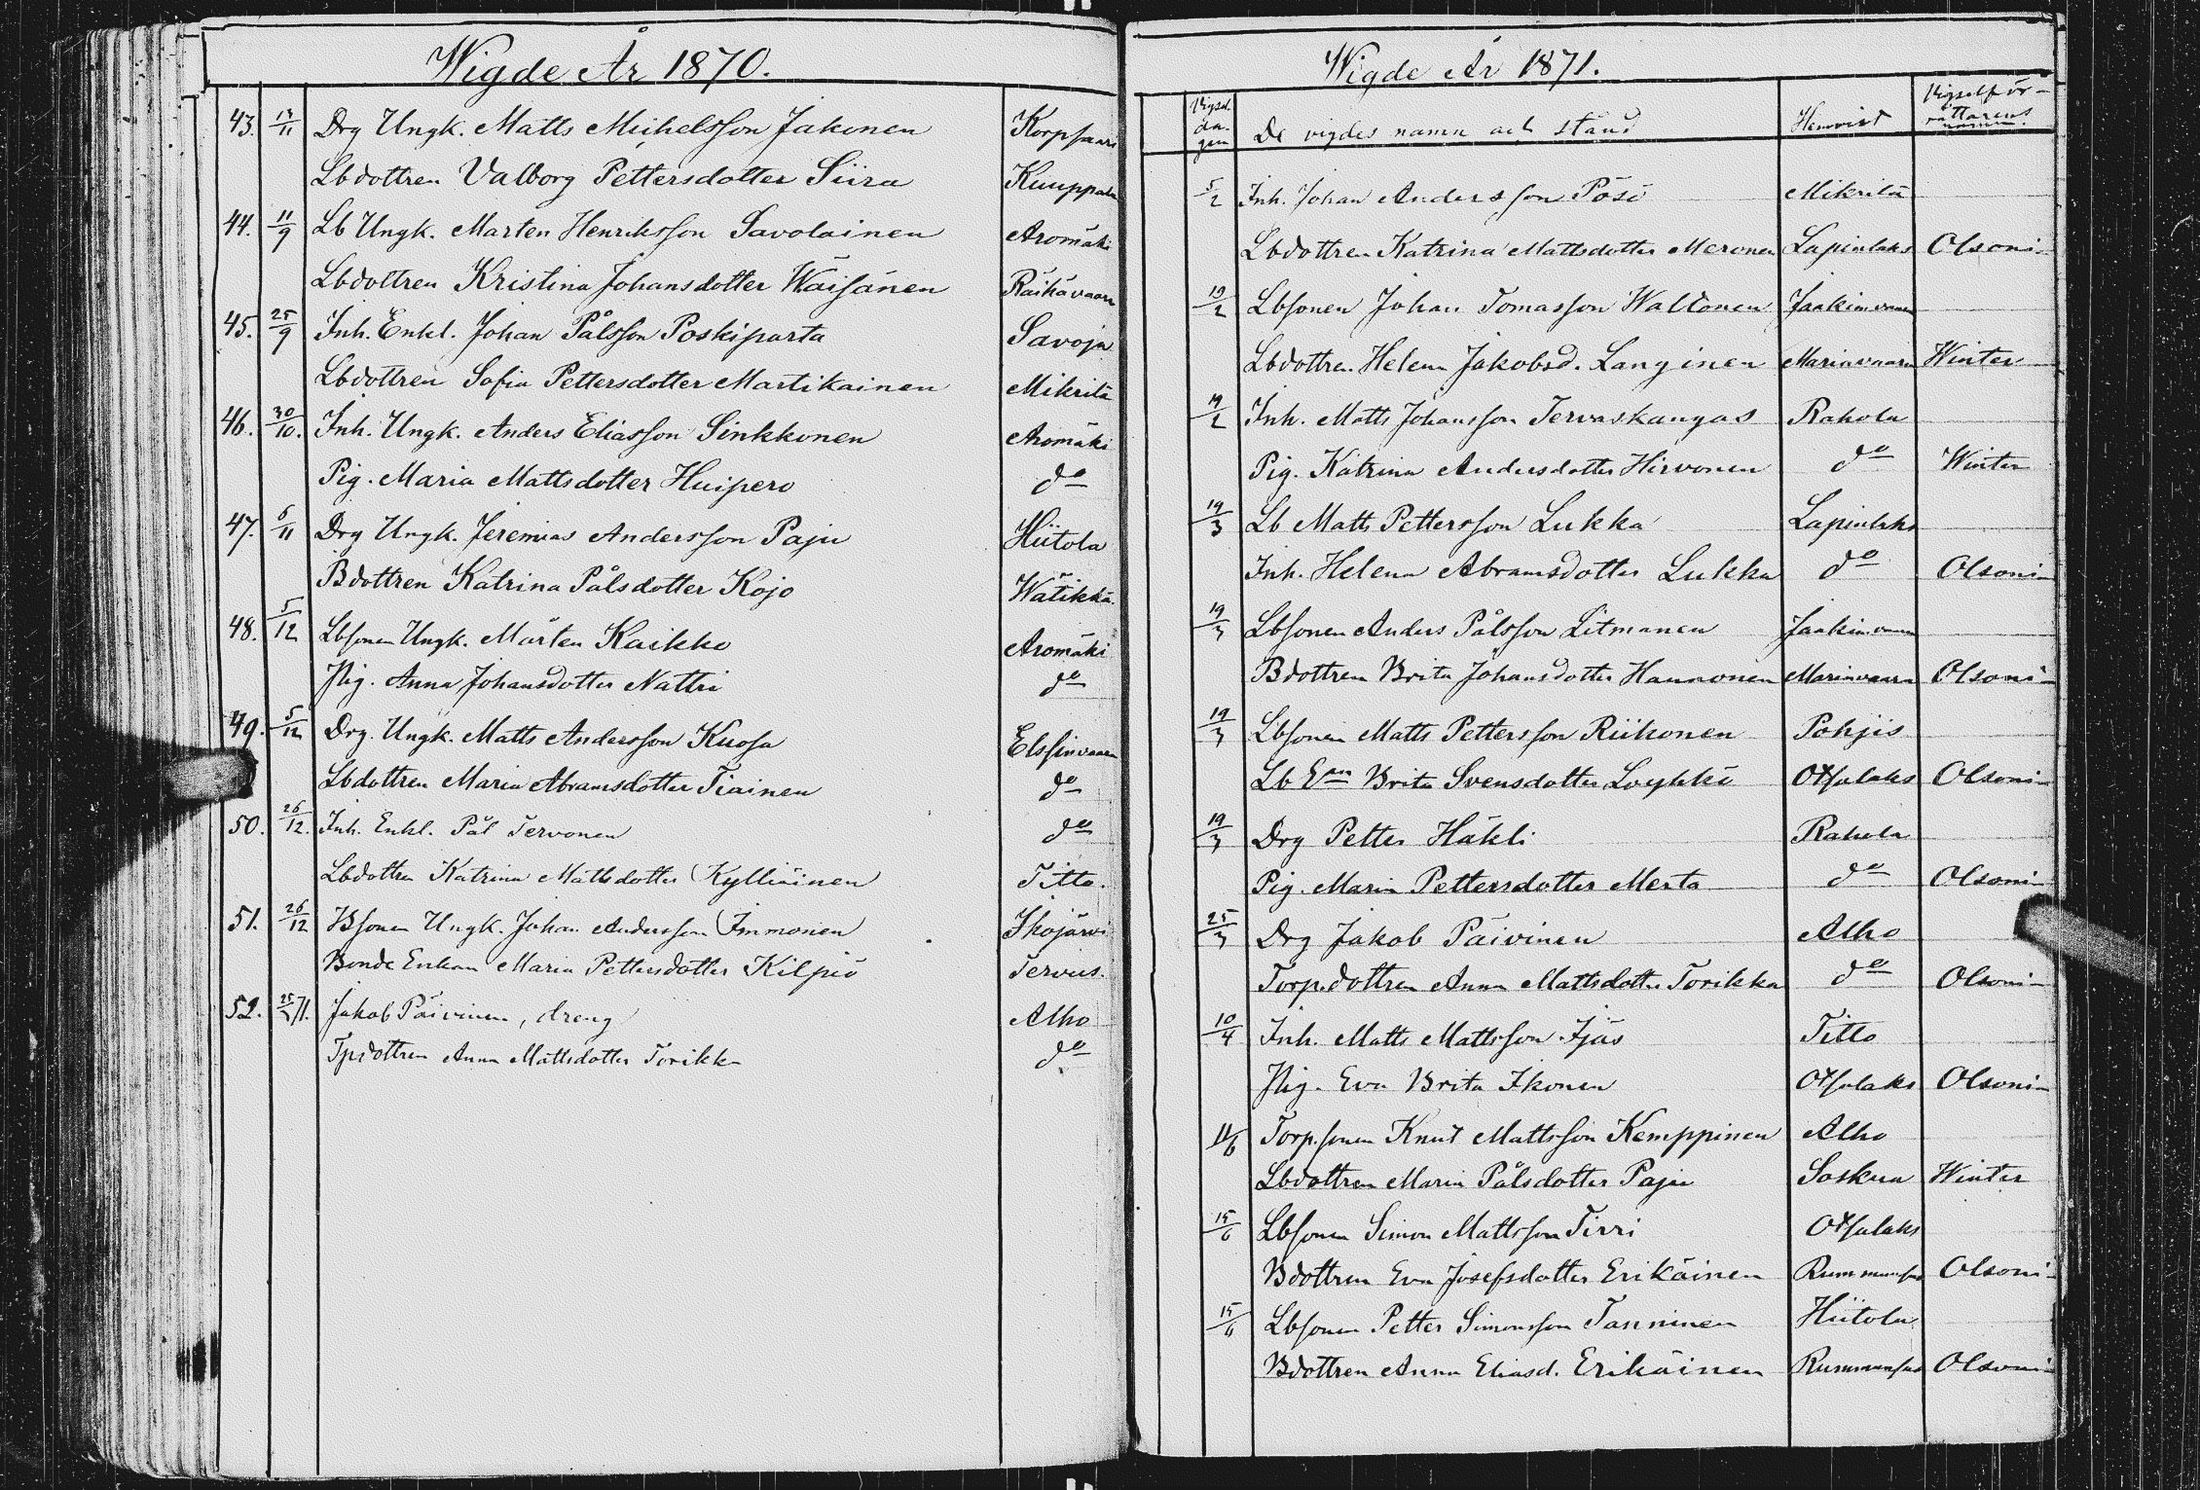 Wigde År 1870.
43. 13/11 Drg Ungk. Matts Michelsson Jakonen Korpsaari
Lbdottren Valborg Pettersdotter Siira Kuuppala
44. 11/9 Lb Ungk. Marten Henriksson Savolainen Aromäki
Lbdottren Kristina Johansdotter Wäisänen Räihävaara
45. 25/9 Inh. Enkl. Johan Pålsson Poskiparta Savoja
Lbdottren Sofia Pettersdotter Martikainen Mikrilä
46. 30/10. Inh. Ungk. Anders Eliasson Sinkkonen Aromäki
Pig. Maria Mattsdotter Huipero do
47. 6/11 Drg Ungk. Jeremias Andersson Paju Hiitola
Bdottren Katrina Pålsdotter Kojo Wätikkä.
48. 5/12 Lbsonen Ungk. Mårten Kaikko Aromäki
Pig. Anna Johansdotter Nättri do
49. 5/12 Drg. Ungk. Matts Andersson Kuosa Elssinvaara
Lbdottren Maria Abramsdotter Tiainen do
50. 26/12. Inh. Enkl. Pål Tervonen do
Lbdottren Katrina Mattsdotter Kylliäinen Titto.
51. 26/12 Bsonen Ungk. Johan Andersson Immonen Ihojärvi
Bonde Enkan Maria Pettersdotter Kilpiö Tervus.
52. 25/3 71. Jakob Päivinen, dreng Alho
Tpdottren Anna Mattsdotter Torikka do
Wigde År 1871.
Vigsel-dagen De vigdes namn och stånd Hemvist Vigselförrättarens namn.
5/2 Inh. Johan Andersson Pösö Mikrilä
Lbdottren Katrina Mattsdotter Meronen Lapinlaks Olsoni
19/2 Lbsonen Johan Tomasson Waltonen Jaakimvaara
Lbdottren Helena Jakobsd. Langinen Marinvaara Winter
19/2 Inh. Matts Johansson Tervaskangas Rahola
Pig. Katrina Andersdotter Hirvonen do Winter
19/3 Lb Matts Pettersson Lukka Lapinlaks
Inh. Helena Abramsdotter Lukka do Olsoni
19/3 Lbsonen Anders Pålsson Litmanen Jaakimvaara
Bdottren Brita Johansdotter Hannonen Marinvaara Olsoni
19/3 Lbsonen Matts Pettersson Riikonen Pohjis
Lb Ean Brita Svensdotter Löykkö Otsalaks Olsoni
19/3 Drg Petter Häkli Rahola
Pig. Maria Pettersdotter Mesta do Olsoni
25/3 Drg Jakob Päivinen Alho
Torp.dottren Anna Mattsdotter Torikka do Olsoni
10/4 Inh. Matts Mattsson Ijäs Titto
Pig. Eva Brita Ikonen Otsalaks Olsoni
11/6 Torp.sonen Knut Mattsson Kemppinen Alho
Lbdottren Maria Pålsdotter Paju Soskua Winter
15/6 Lbsonen Simon Mattsson Tirri Otsalaks
Bdottren Eva Josefsdotter Erikäinen Olsoni
15/6 Lbsonen Petter Simonsson Tanninen Hiitola
Bdottren Anna Eliasd. Erikäinen Olsoni